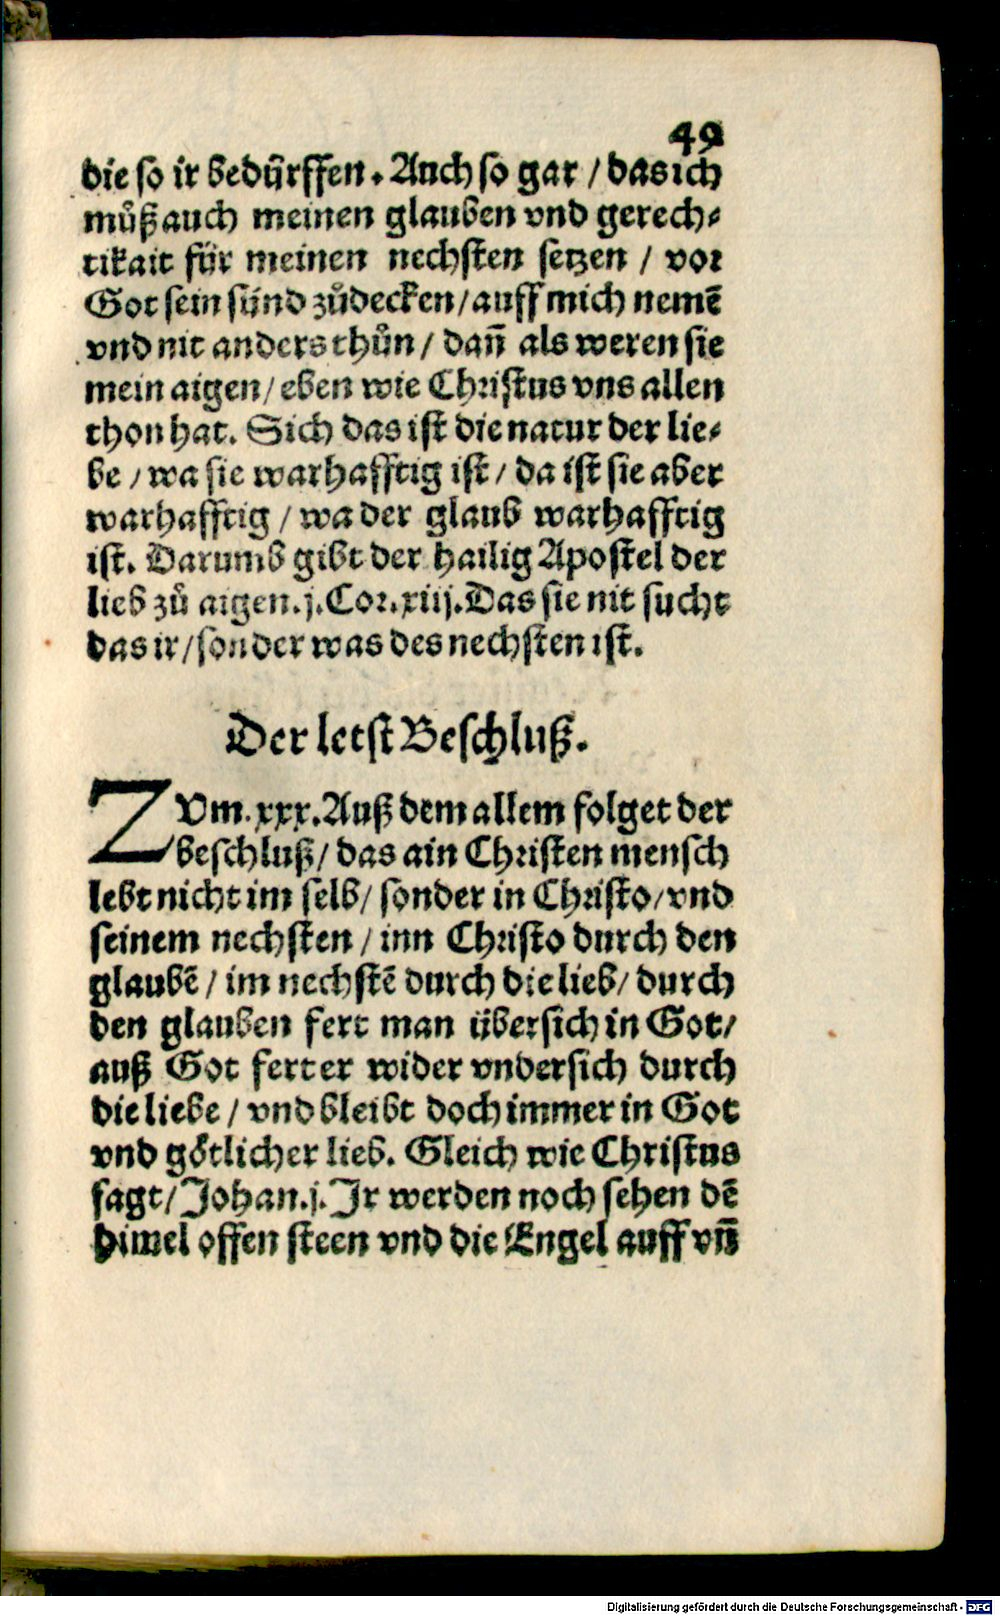 49
die so ir bedürffen. Auch so gar / das ich
muͦß auch meinen glauben vnd gerech⸗
tikait für meinen nechsten setzen / vor
Got sein sünd zuͦdecken / auff mich nemē
vnd nit anders thuͦn / dañ als weren sie
mein aigen / eben wie Christus vns allen
thon hat. Sich das ist die natur der lie⸗
be / wa sie warhafftig ist / da ist sie aber
warhafftig / wa der glaub warhafftig
ist. Darumb gibt der hailig Apostel der
lieb zuͦ aigen. j. Cor. xiij. Das sie nit sucht
das ir / sonder was des nechsten ist.
Der letst Beschluß.
ZVm. xxx. Auß dem allem folget der
beschluß / das ain Christen mensch
lebt nicht im selb / sonder in Christo / vnd
seinem nechsten / inn Christo durch den
glaubē / im nechstē durch die lieb / durch
den glauben fert man übersich in Got /
auß Got fert er wider vndersich durch
die liebe / vnd bleibt doch immer in Got
vnd goͤtlicher lieb. Gleich wie Christus
sagt / Johan. j. Jr werden noch sehen dē
himel offen steen vnd die Engel auff vñ
Digitalisierung gefördert durch die Deutsche Forschungsgemeinschaft - DFG